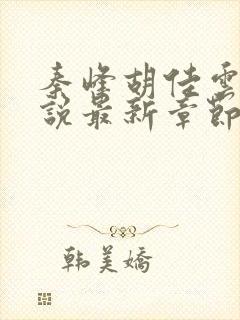 秦峰胡佳雲
說最新章節
韩美嬌